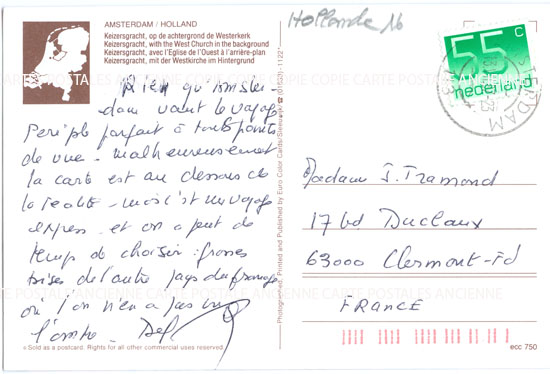 AMSTERDAM / HOLLAND
Keizersgracht, op de achtergrond de Westerkerk
Keizersgracht, with the West Church in the background
Keizersgracht, avec l'Eglise de l'Ouest à l'arrière-plan
Keizersgracht, mit der Westkirche im Hintergrund
Hollande 16
55 c
nederland
Rien qu'Amster-
dam vaut le voyage
Périple parfait à tous points
de vue - malheureusement
la carte est au dessous de
la réalité - mais c'est un voyage
express - et on a peu de
temps de choisir : grosses
bises de l'autre pays du fromage
où l'on n'en a pas vu
l'ombre -
Madame J. Tramond
17 bd Duclaux
63000 Clermont-Fd
FRANCE
CARTE POSTALES ANCIENNE
Sold as a postcard. Rights for all other commercial uses reserved.
ecc 750